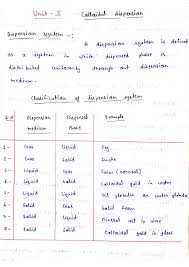 Unit - I Colloidal dispersion
Dispersion system -:
A dispersion system is defined
as a system in which dispersed phase is
distributed uniformly through out dispersion
medium.
Classification of dispersion system
S.no Dispersion medium Dispersed Phase Example
1- Gas Liquid Fog
2- Gas Solid Smoke
3- Liquid Gas Foam
4- Liquid Solid Colloidal gold in water
5- Liquid Liquid Oil globules in water
6- Solid Gas Foam
7- Solid Liquid Mineral oil in wax
8- Solid Solid Colloidal gold in glass